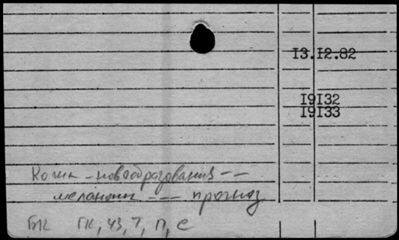 13.12.82
19132
19133
Кожа - новообразования --
меланома --- прогноз
ГК, 43, 7, П, С